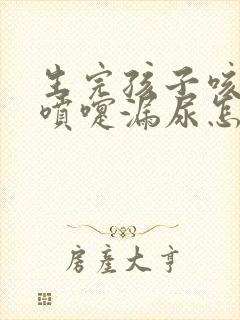 生完孩子咳
喷嚏漏尿怎
房产大亨